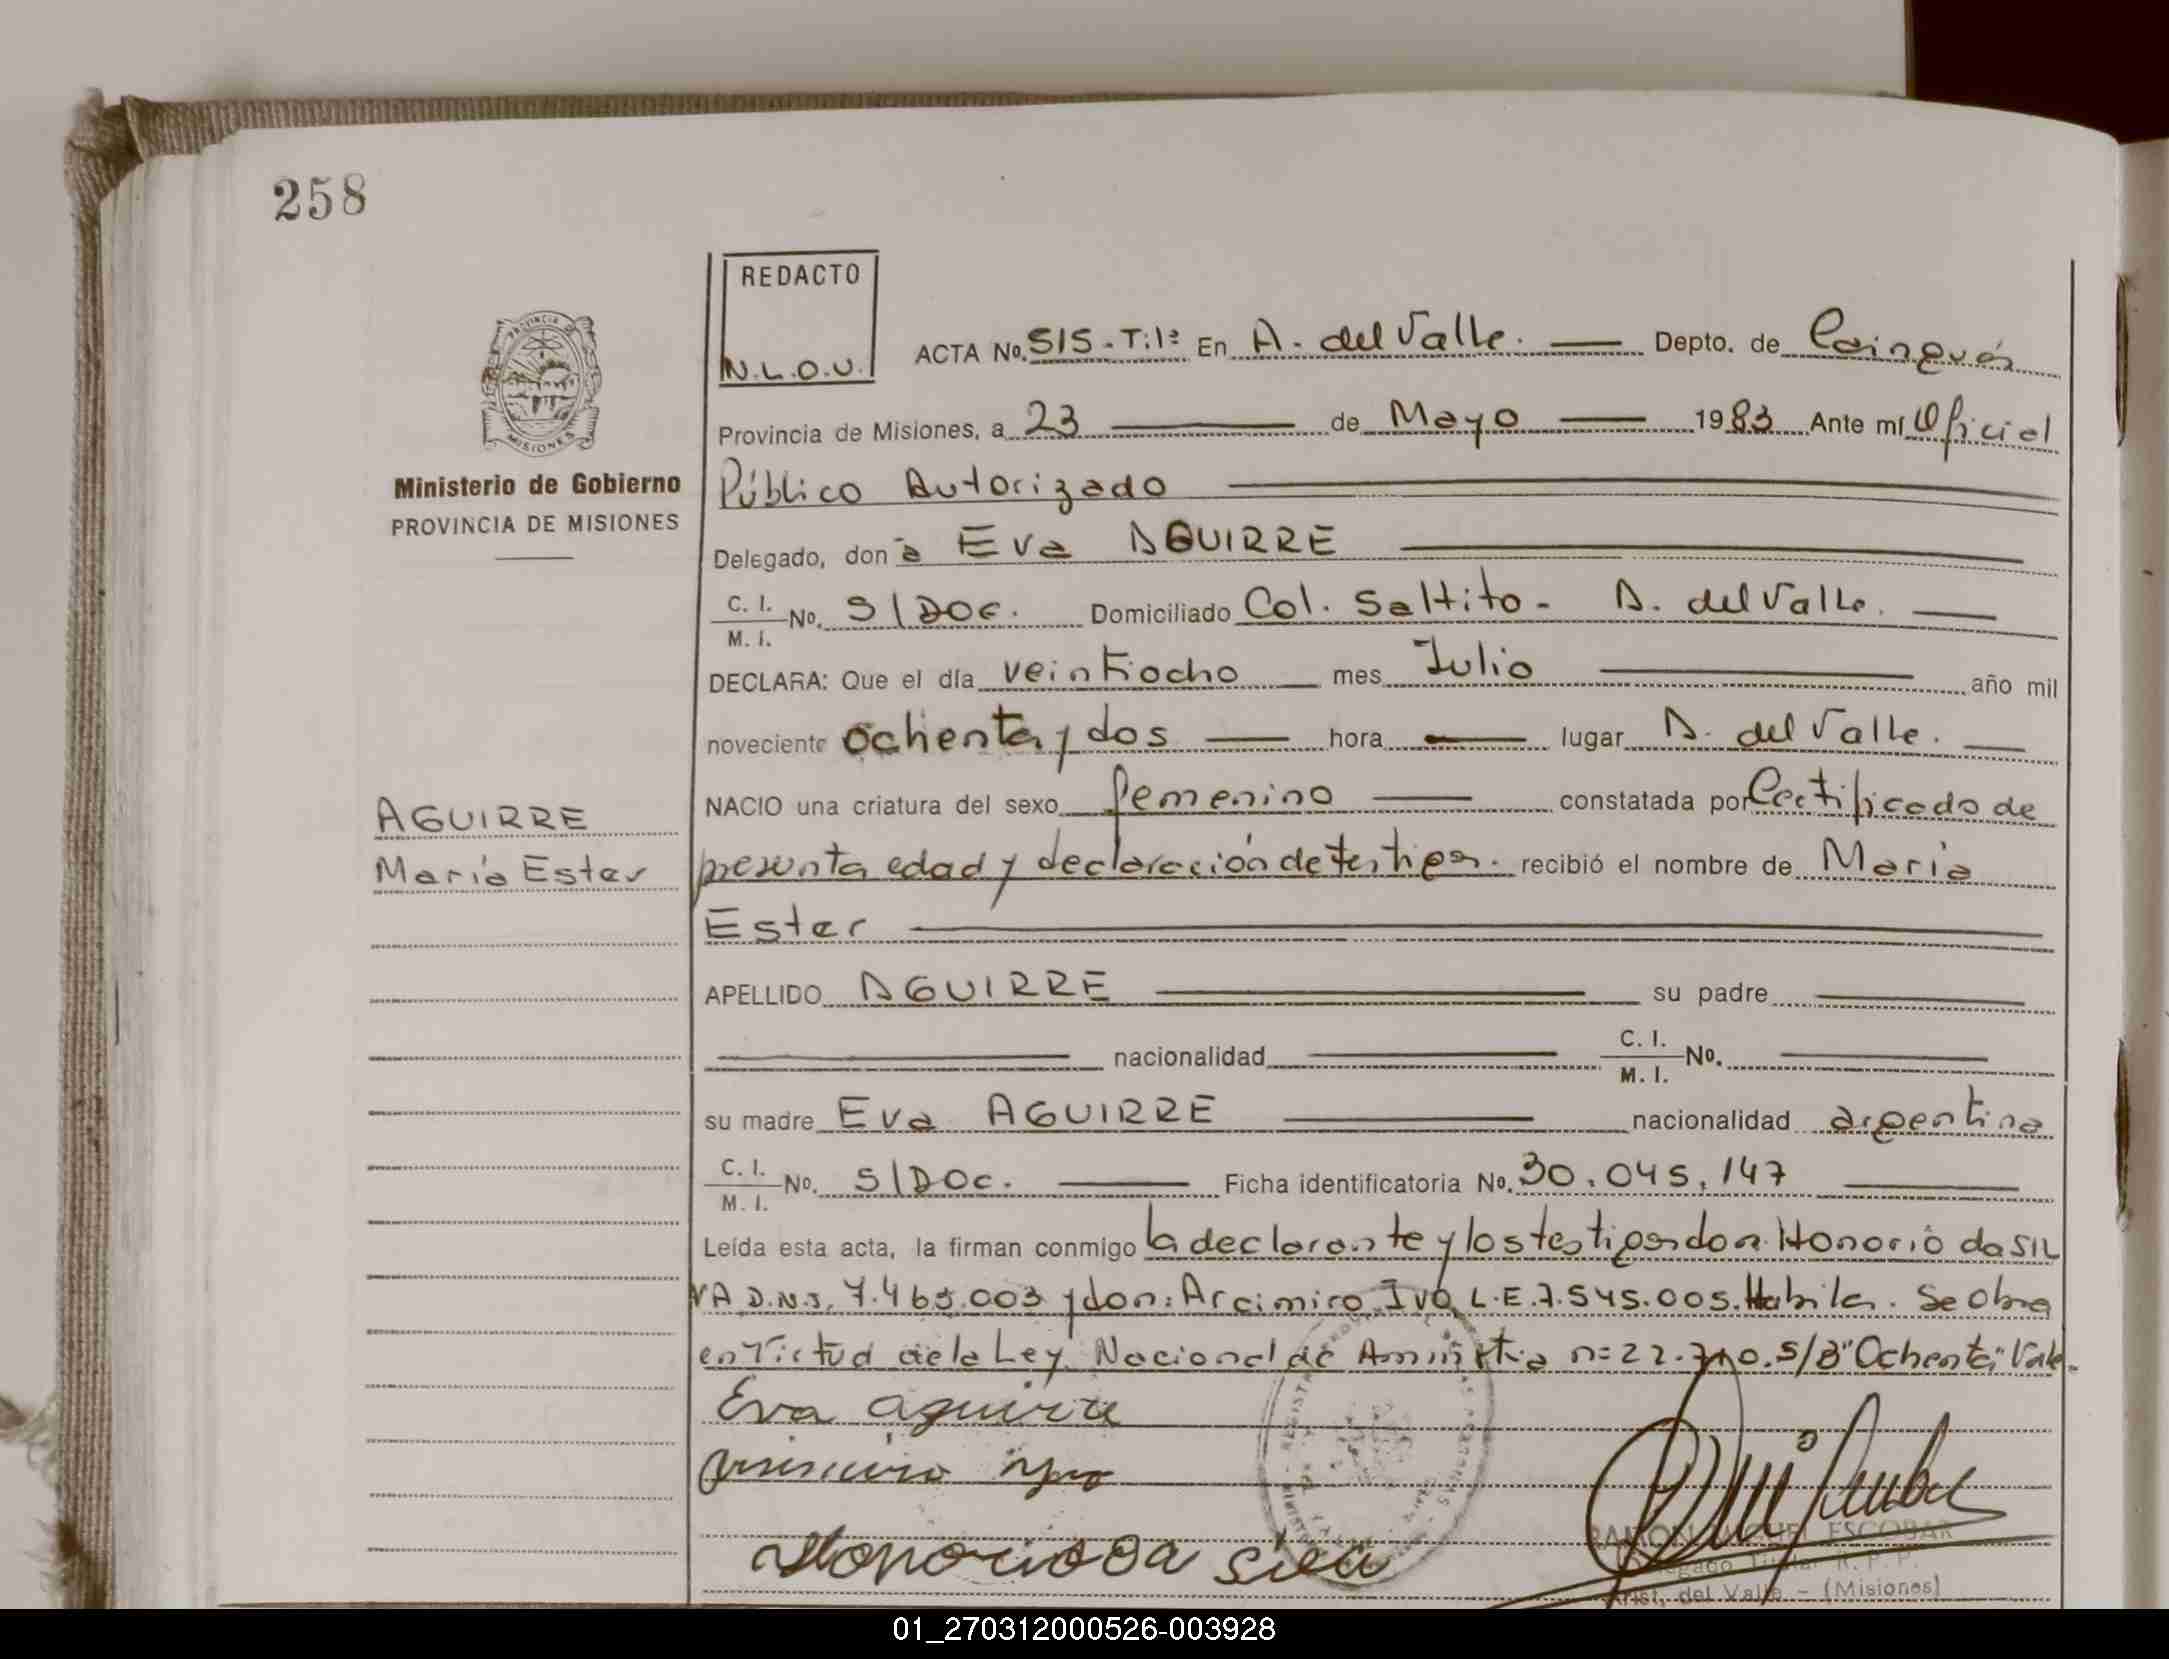 258
REDACTO
N.L.O.U.
ACTA No. 515-T:1ª En A. del Valle. Depto. de Cainguás
PROVINCIA
MISIONES
Provincia de Misiones, a 23 de Mayo 1983 Ante mí Oficial
Ministerio de Gobierno
PROVINCIA DE MISIONES
Público Autorizado
Delegado, don a Eva AGUIRRE
C. I.
M. I.
No. S/Doc. Domiciliado Col. Saltito - A. del Valle.
DECLARA: Que el día veintiocho mes Julio año mil
noveciento ochenta y dos hora lugar A. del Valle.
NACIO una criatura del sexo femenino constatada por Certificado de
AGUIRRE
María Ester
presunta edad y declaración de testigos. recibió el nombre de María
Ester
APELLIDO AGUIRRE su padre
nacionalidad C. I.
M. I. No.
su madre Eva AGUIRRE nacionalidad argentina
C. I.
M. I.
No. S/Doc. Ficha identificatoria No. 30.045.147
Leída esta acta, la firman conmigo la declarante y los testigos don Honorio da SIL
VA D.N.I. 7.463.003 y don: Arcimiro Ivo L.E.7.545.005. Se obra
en Virtud de la Ley Nacional de Amnistia n=22.710. S/B "Ochenta" Vale.
Eva Aguirre
Honorio Da Silva
RAMON MIGUEL ESCOBAR
Delegado Titular R. P. P.
Arist. del Valle - (Misiones)
01_270312000526-003928